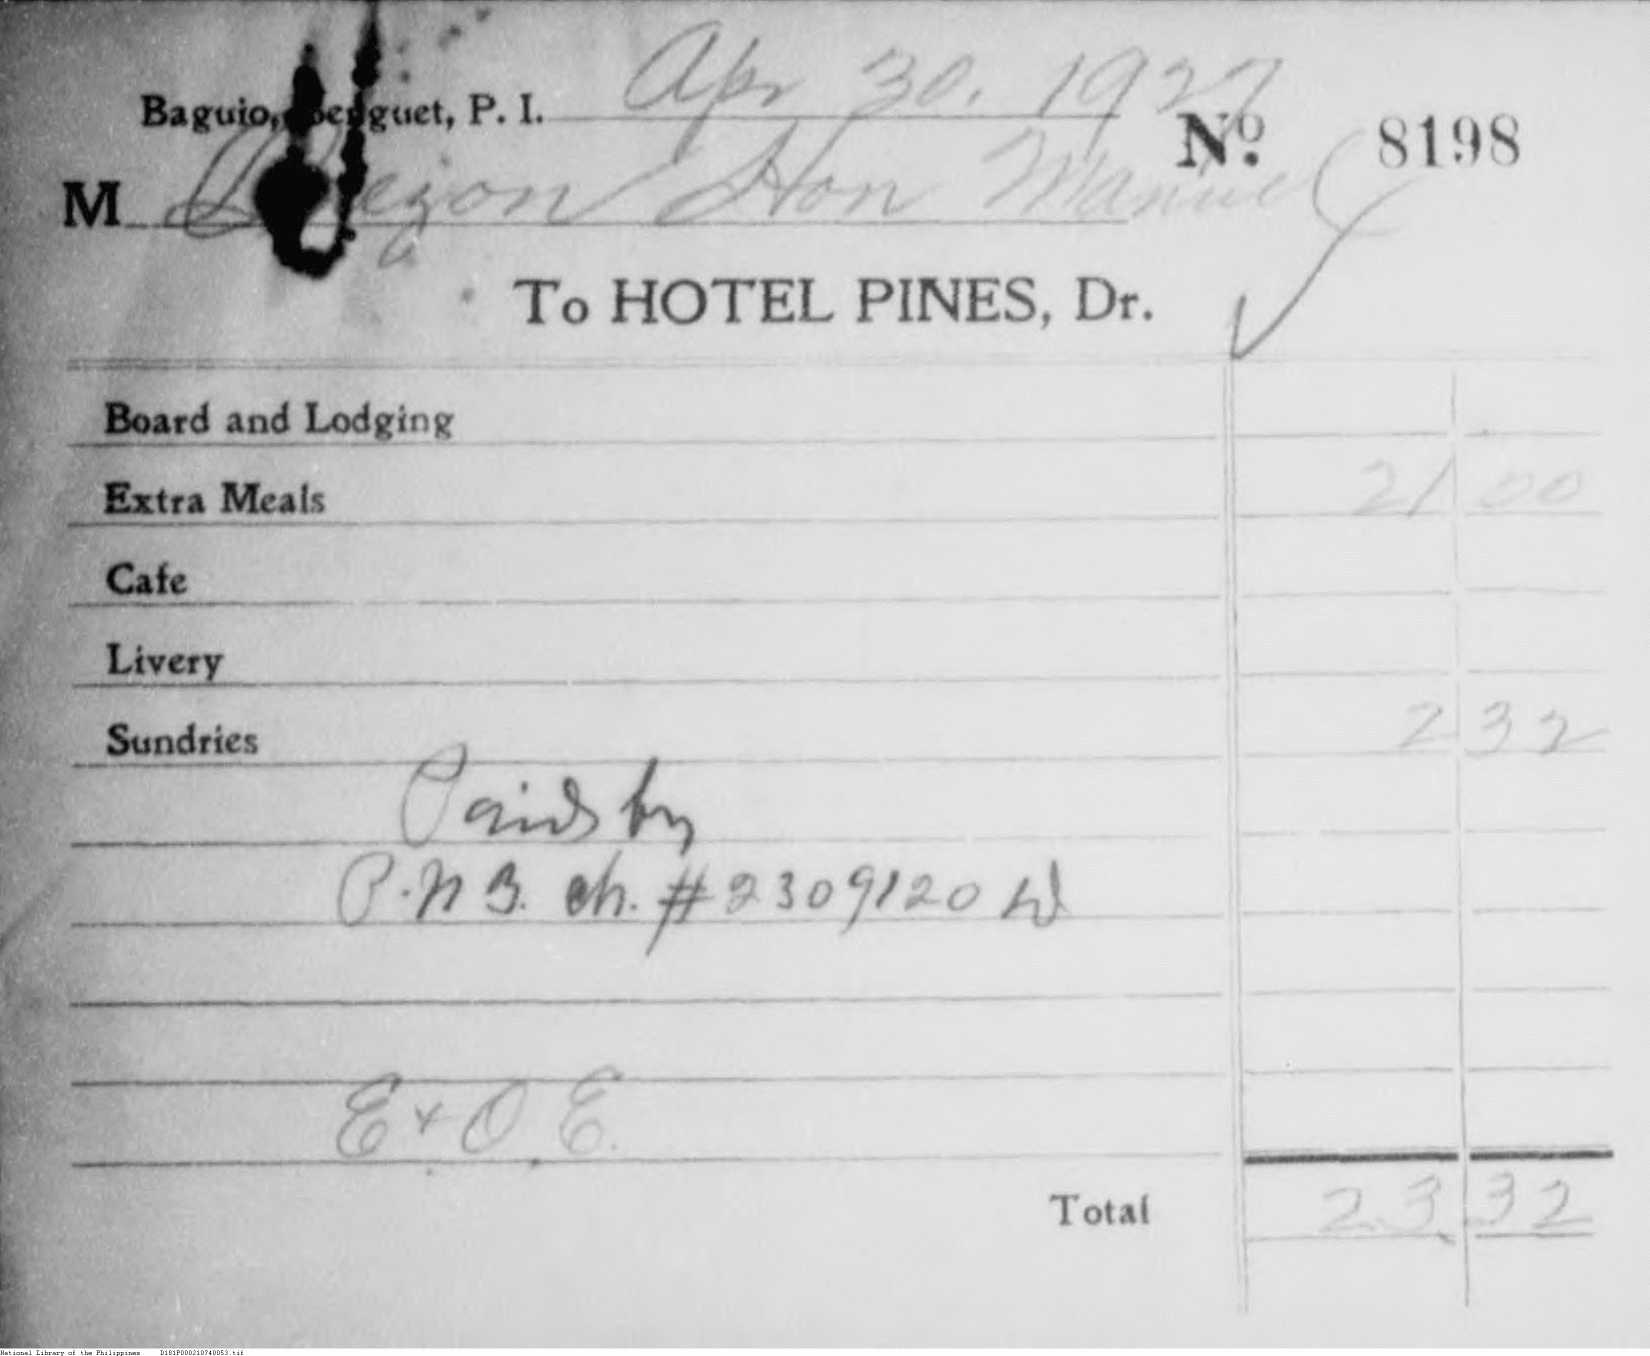 Baguio, Benguet, P. I. Apr 30, 1927
No. 8198
M Quezon Hon Manuel
To HOTEL PINES, Dr.
Board and Lodging
Extra Meals 21 00
Cafe
Livery
Sundries 2 32
Paid by
P.N B. ch. #2309120
E & O E.
Total 23 32
National Library of the Philippines D181P000210740053.tif